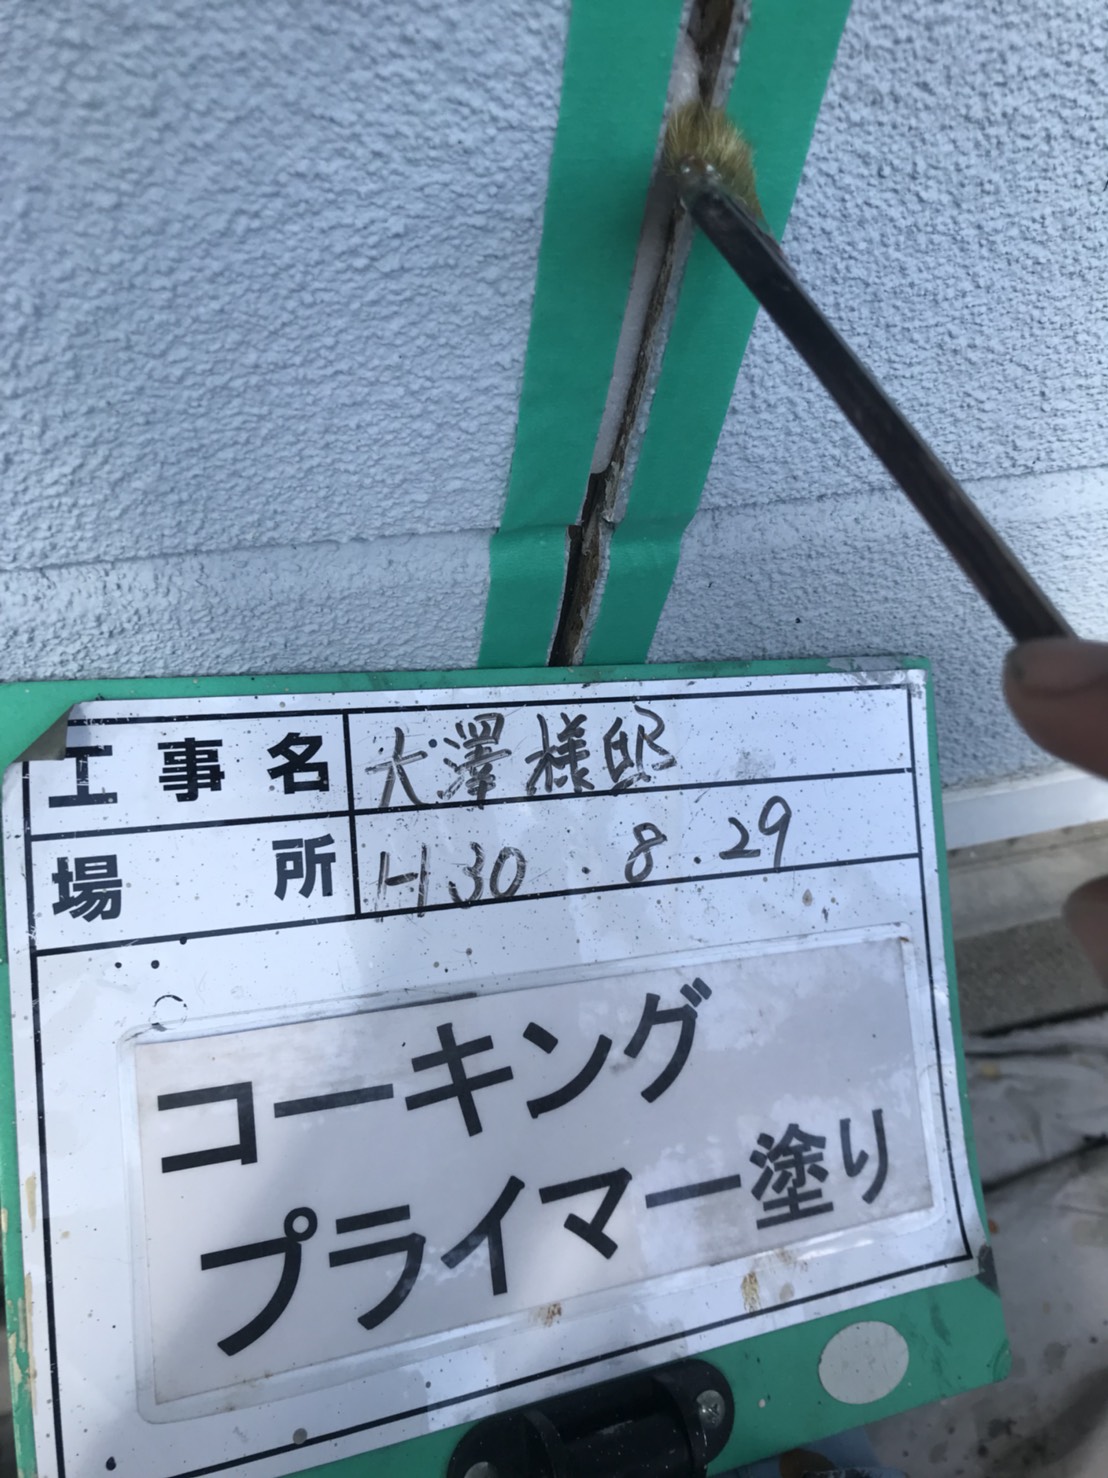 工事名 大澤様邸
場所 H30.8.29
コーキング
プライマー塗り